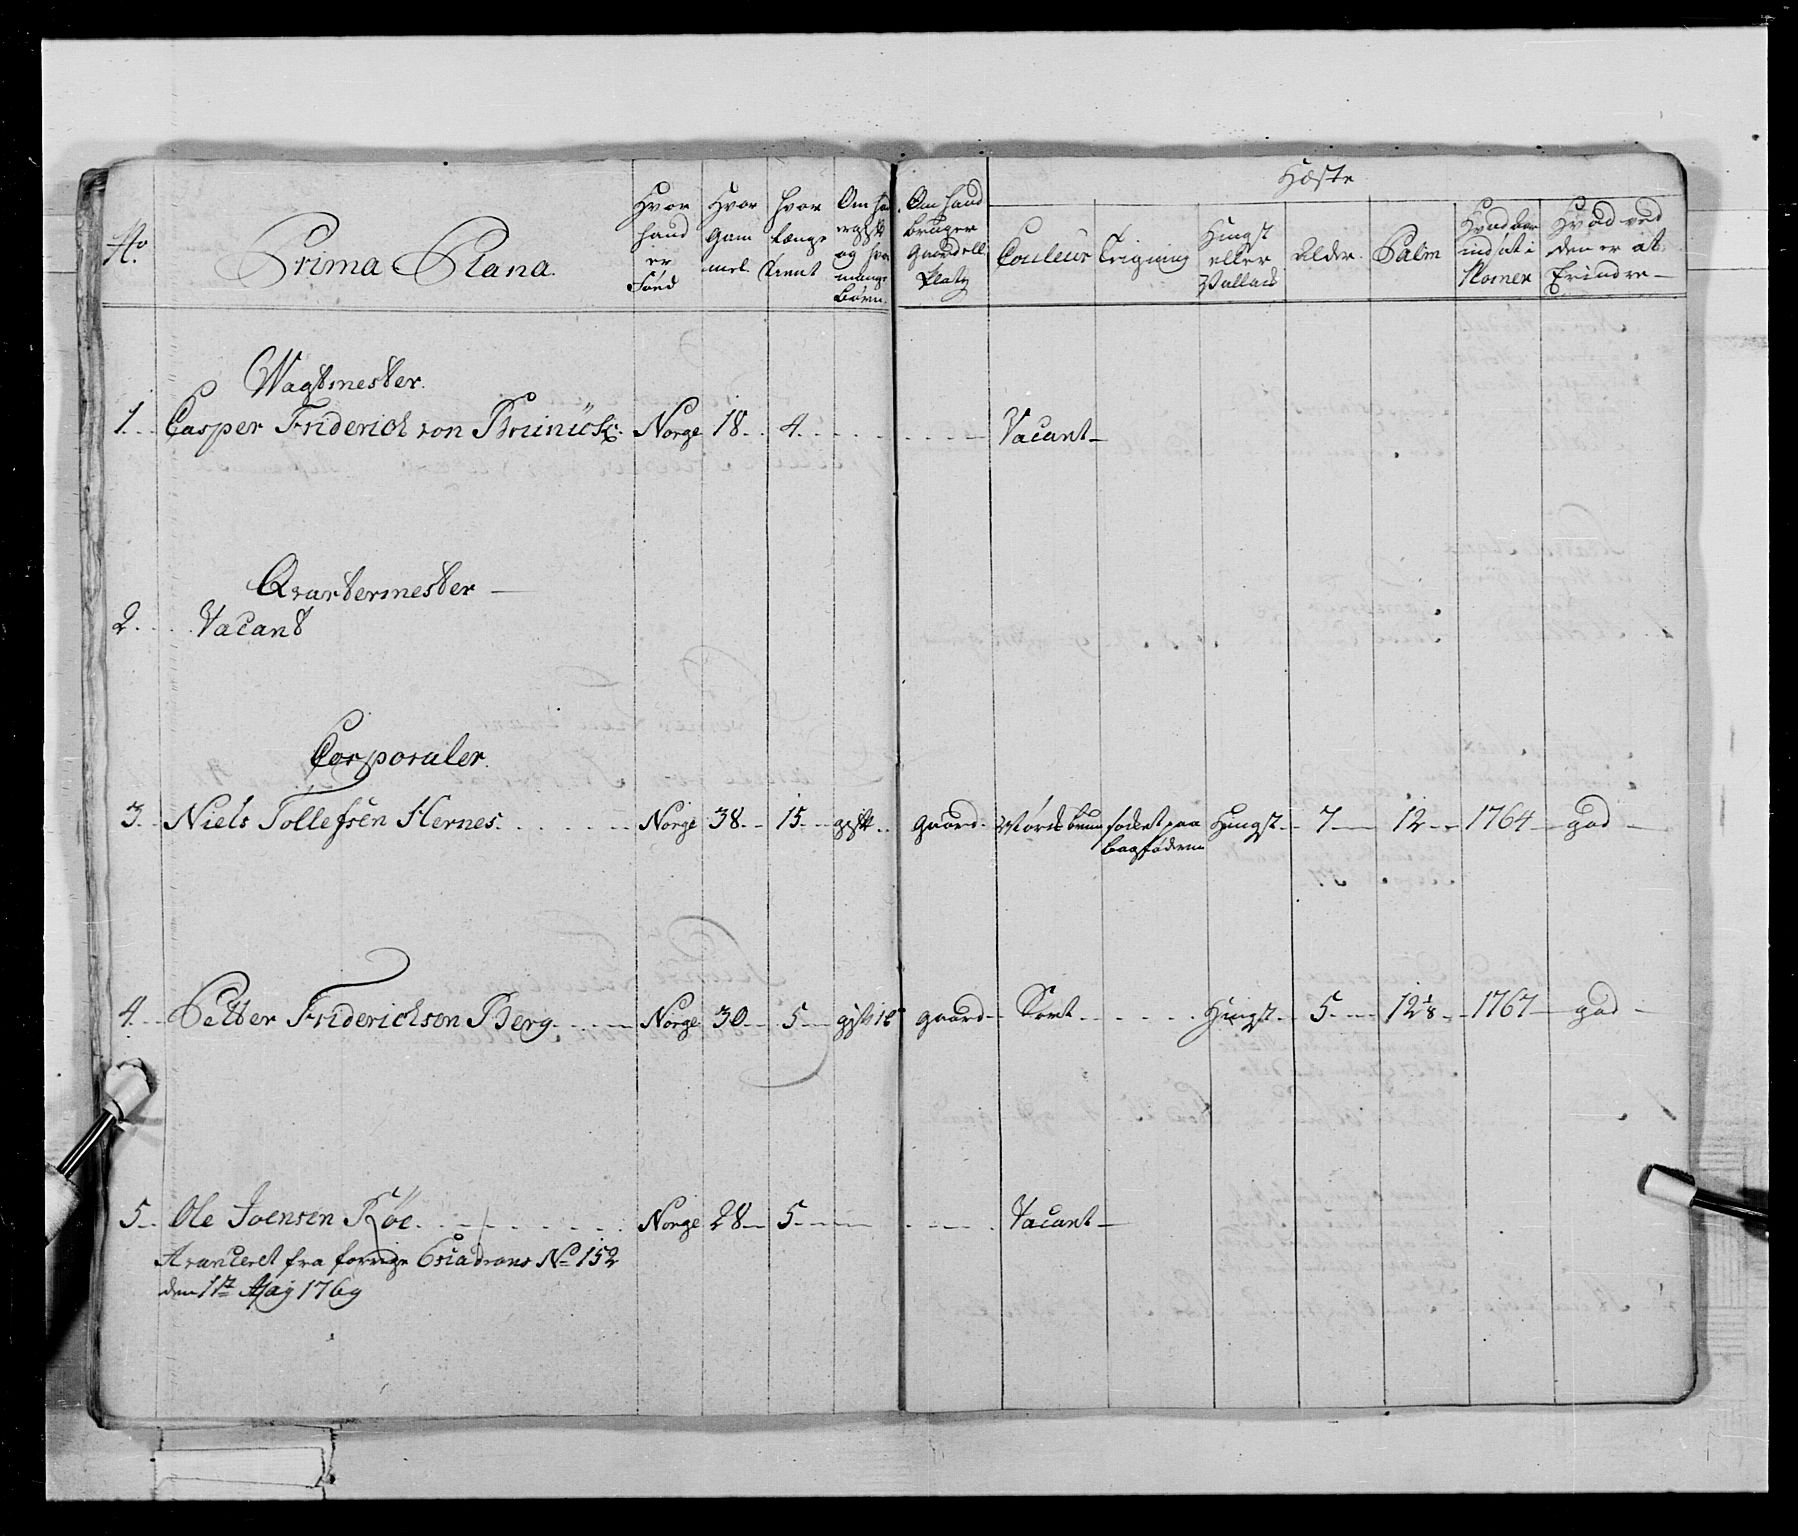 No.
Prima Plana.
Hvor hand er Föed
Hvor Gam mel.
hvor Længe tient
Om hand er gift og hvor mange Börn.
Om hand bruger Gaard ell. Platz
Hæste
Couleur
Teigning
Hingst eller Vallack
Alder.
Palm
Hvad Aar indsat i Nomer
Hvad ved den er at Erindre
Wagtmester.
1. Casper Friderich von Brünick. Norge 18. 4. Vacant
Qvartermester
2. Vacant
Corporaler.
3. Niels Tollefsen Hernes. Norge 38. 15 gift. gaard. Mörkbrun sokket paa Hingst. 7 12 1764 god
bagföderne
4. Petter Friderichson Berg. Norge 30 5 gift 1 gaard Sort Hingst. 5 12 1/8 1767 god
5. Ole Joensen Röe. Norge 28 5 Vacant
Avanceret fra forrige Escadrons No 152
den 1te Maj 1769